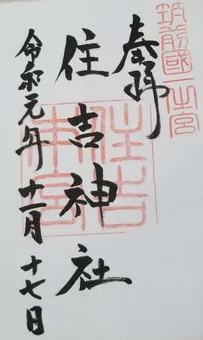 筑前國一之宮
奉拝
住吉神社
住吉本宮
令和元年十一月十七日